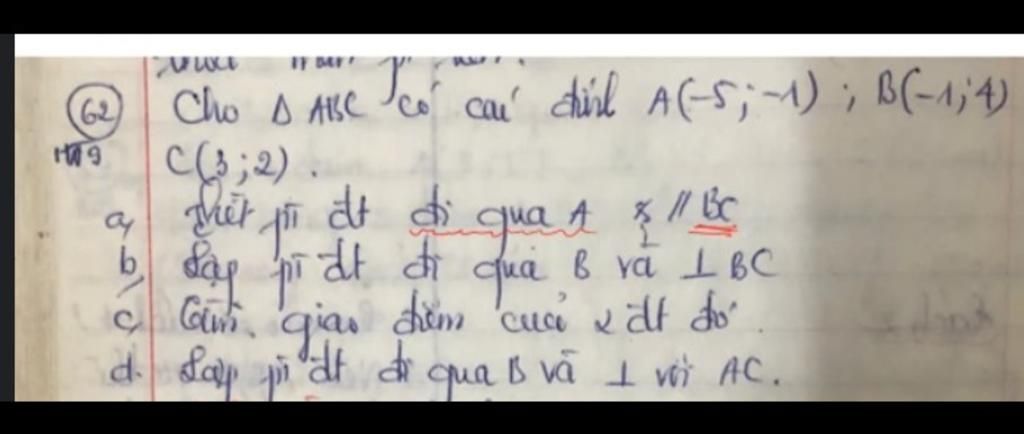 62 Cho Δ ABC có các đỉnh A(-5;-1) ; B(-1;4)
C(3;2).
a, Viết pt đt đi qua A & // BC
b, Lập pt đt đi qua B và ⊥ BC
c, Tìm giao điểm của 2 đt đó.
d. Lập pt đt đi qua B và ⊥ với AC.